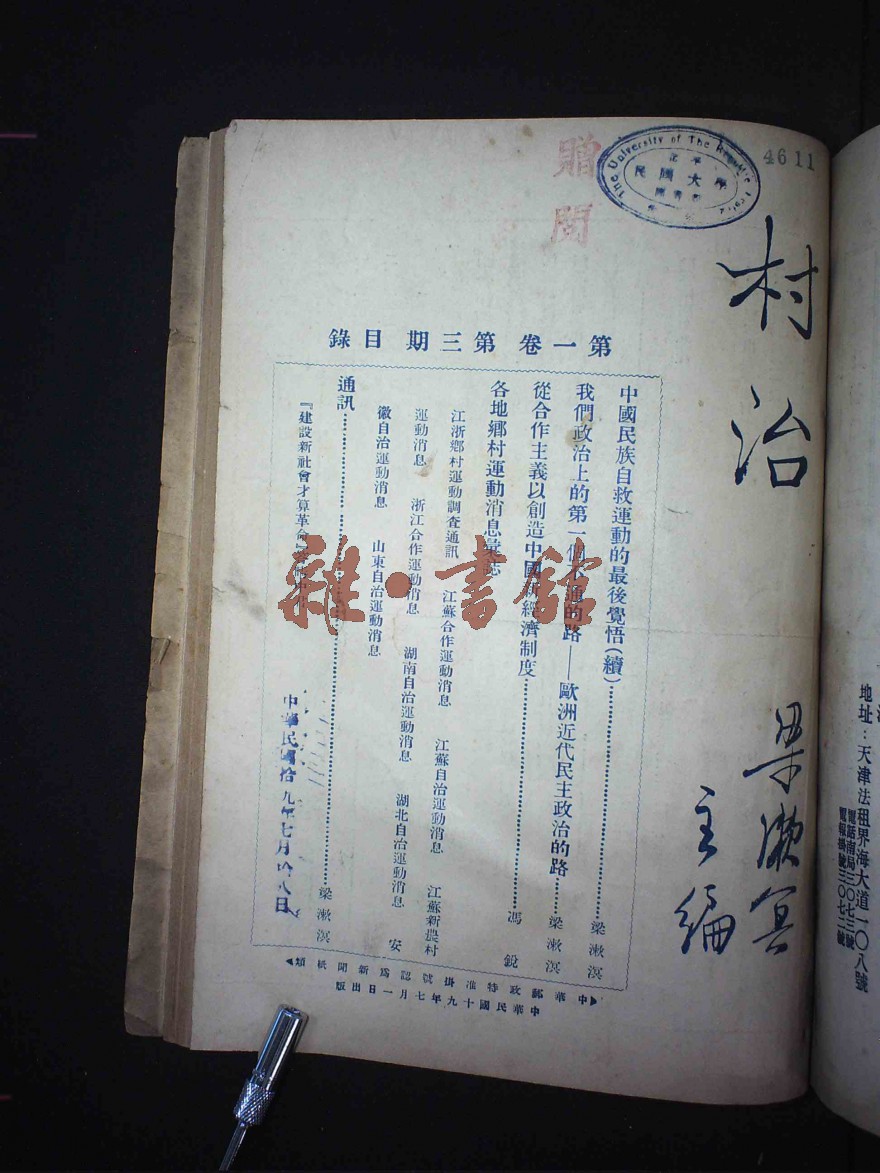 村治
梁漱冥
主編
4611
The University of The Republic
民國大學
贈閱
第一卷 第三期 目錄
中國民族自救運動的最後覺悟(續)……梁漱溟
我們政治上的第一個不通的路——歐洲近代民主政治的路……梁漱溟
從合作主義以創造中國新經濟制度……馮銳
各地鄉村運動消息彙誌
江浙鄉村運動調查通訊 江蘇合作運動消息 江蘇自治運動消息 江蘇新農村
運動消息 浙江合作運動消息 湖南自治運動消息 湖北自治運動消息 安
徽自治運動消息 山東自治運動消息
通訊……梁漱溟
『建設新社會才算革命』
中華民國拾九年七月拾八日
中華郵政特准掛號認為新聞紙類
中華民國十九年七月一日出版
雜·書館
地址:天津法租界海大道一〇八號
電話南局三〇七三號
電報掛號三〇七二號